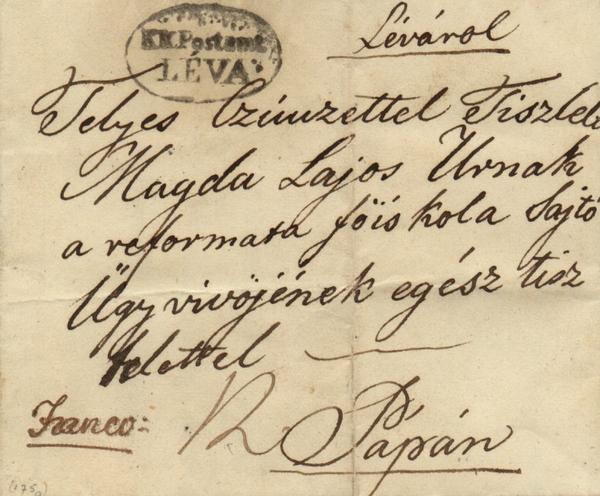 K K Postamt
LÉVA
Léváról
Telyes Czímzettel Tisztele
Magda Lajos Úrnak
a reformata főiskola Sajtó
Ügyvivőjének egész tisz
telettel
Franco
Pápán